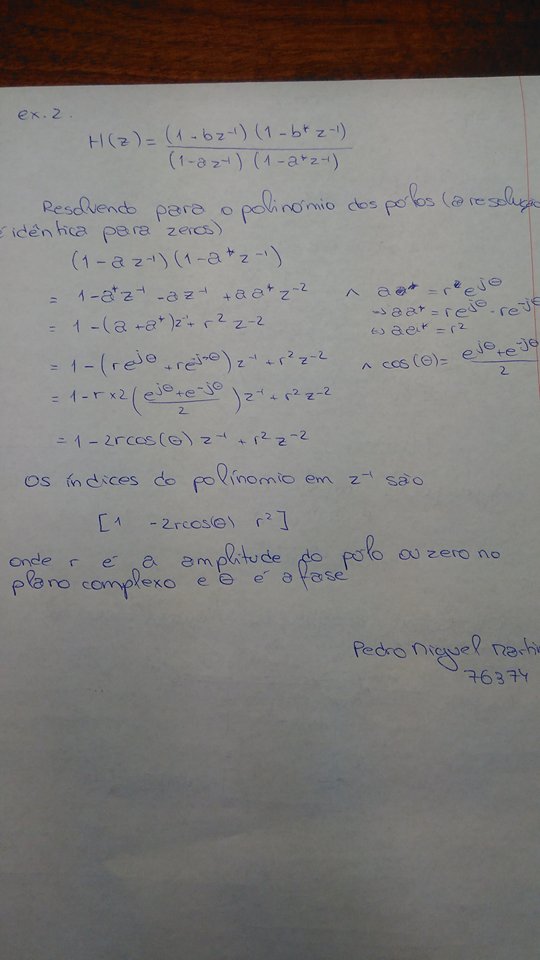 ex. 2.
H(z) = (1 - bz⁻¹) (1 - b* z⁻¹) / (1 - az⁻¹) (1 - a* z⁻¹)
Resolvendo para o polinómio dos pólos (a resolução
é idêntica para zeros)
(1 - a z⁻¹)(1 - a* z⁻¹)
= 1 - a* z⁻¹ - az⁻¹ + aa* z⁻² ∧ aa* = r² e^jθ
= 1 - (a + a*) z⁻¹ + r² z⁻² => aa* = re^jθ · re^-jθ
<=> aa* = r²
= 1 - (re^jθ + re^-jθ) z⁻¹ + r² z⁻² ∧ cos(θ) = (e^jθ + e^-jθ) / 2
= 1 - r × 2 ((e^jθ + e^-jθ) / 2) z⁻¹ + r² z⁻²
= 1 - 2rcos(θ) z⁻¹ + r² z⁻²
Os índices do polínomio em z⁻¹ são
[1 -2rcos(θ) r²]
onde r é a amplitude do pólo ou zero no
plano complexo e θ é a fase
Pedro Miguel
76374